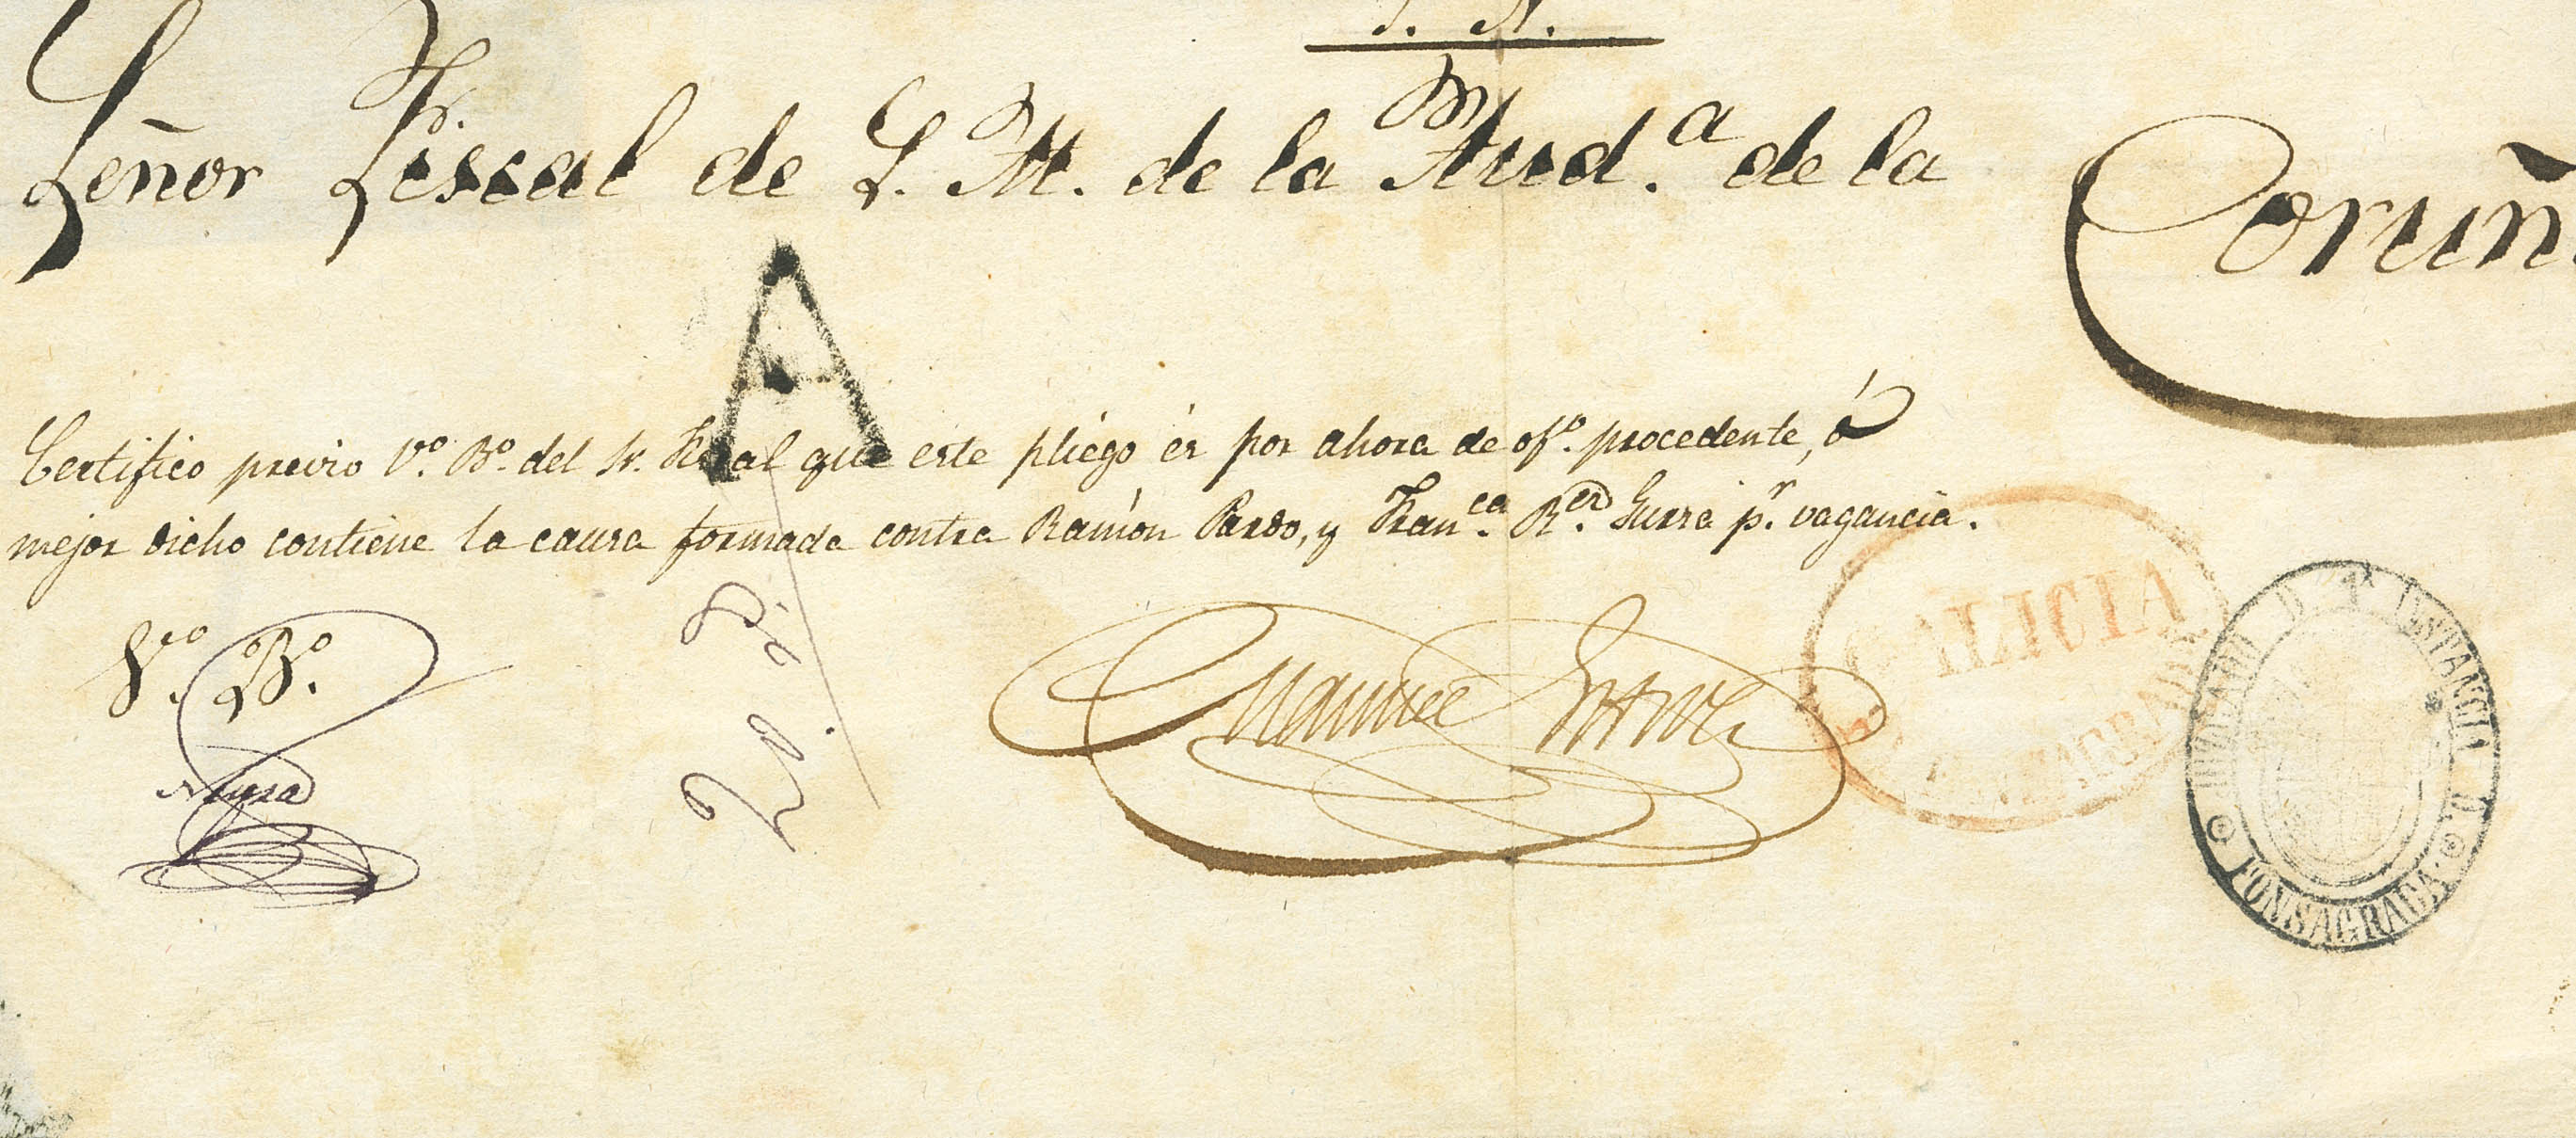 S. N.
Señor Fiscal de S. M. de la Aud.ª de la Coruñ
Certifico previo V.º B.º del Sr. Fiscal que este pliego és por ahora de of.º procedente, ó
mejor dicho contiene la causa formada contra Ramón Pardo, y Fran.ca R.ez Gurra p.r vagancia.
V.to B.º
A
Manuel
GALICIA
JUZGADO D. 1ª INSTANCIA D.
FONSAGRADA